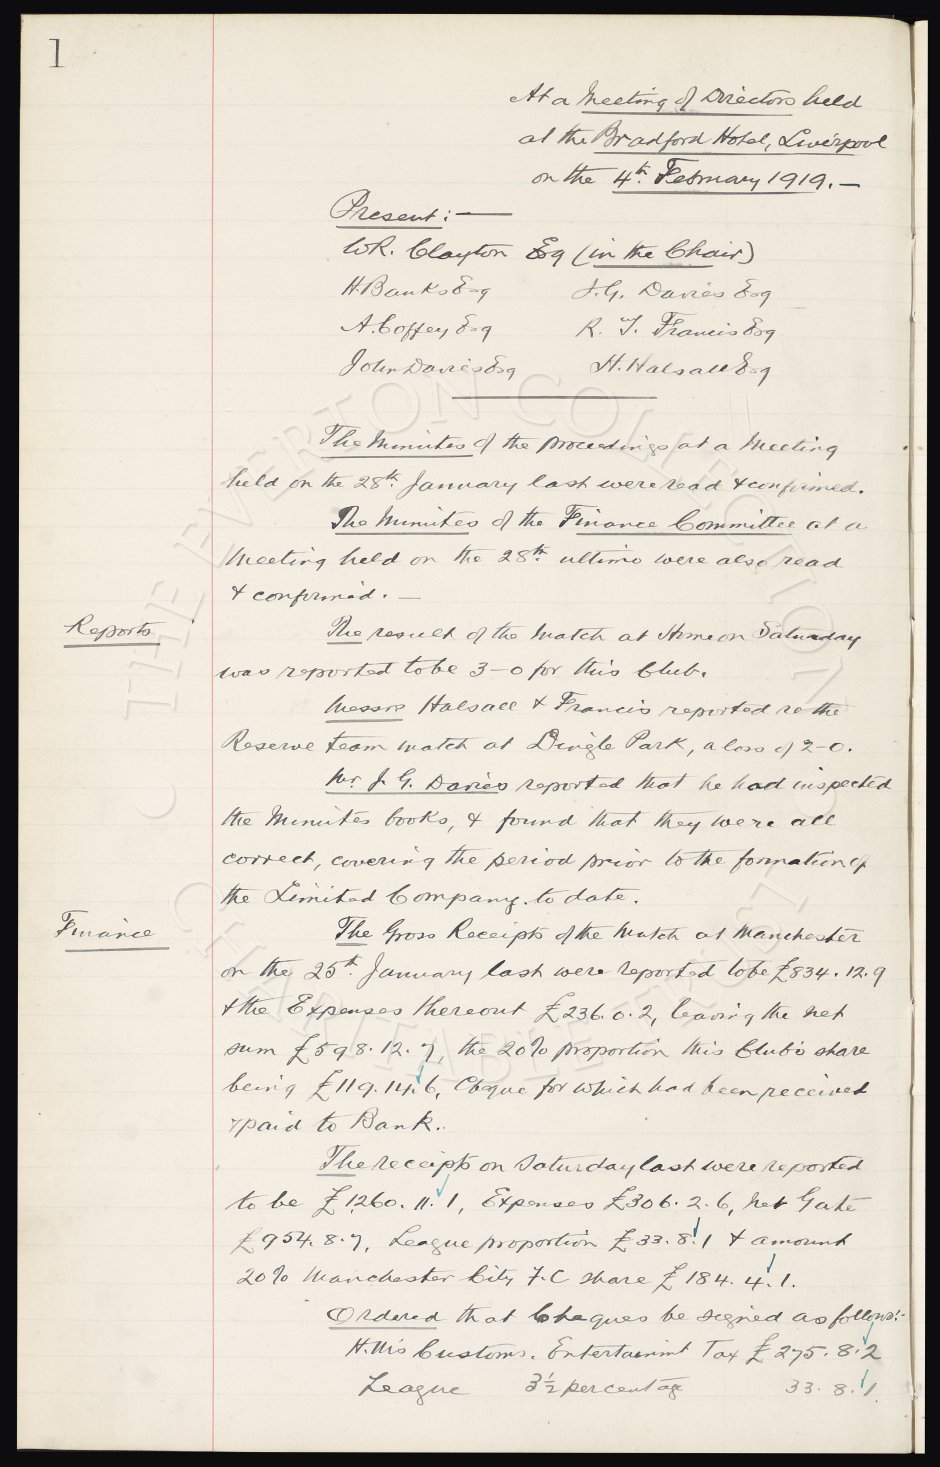 1
At a Meeting of Directors held
at the Bradford Hotel, Liverpool
on the 4th. February 1919. —
Present: —
W.R. Clayton Esq (in the Chair)
H. Banks Esq J.G. Davies Esq
A. Coffey Esq R. T. Francis Esq
John Davies Esq H. Halsall Esq
The Minutes of the proceedings at a Meeting
held on the 28th. January last were read & confirmed.
The Minutes of the Finance Committee at a
Meeting held on the 28th. ultimo were also read
& confirmed. —
Reports
The result of the match at Home on Saturday
was reported to be 3-0 for this Club.
Messrs Halsall & Francis reported re the
Reserve team match at Dingle Park, a loss of 2-0.
Mr. J. G. Davies reported that he had inspected
the Minutes books, & found that they were all
correct, covering the period prior to the formation of
the Limited Company. to date.
Finance
The Gross Receipts of the Match at Manchester
on the 25th. January last were reported to be £834.12.9
& the Expenses thereout £236.0.2, leaving the net
sum £598.12.7, the 20% proportion this Club's share
being £119.14.6, Cheque for which had been received
& paid to Bank.
The receipts on Saturday last were reported
to be £1260.11.1, Expenses £306.2.6, net Gate
£954.8.7, League proportion £33.8.1 & amount
20% Manchester City F.C share £184.4.1.
Ordered that Cheques be signed as follows:-
H.M's Customs. Entertainmt Tax £275.8.2
League 3½ percentage 33.8.1
© THE EVERTON COLLECTION
CHARITABLE TRUST